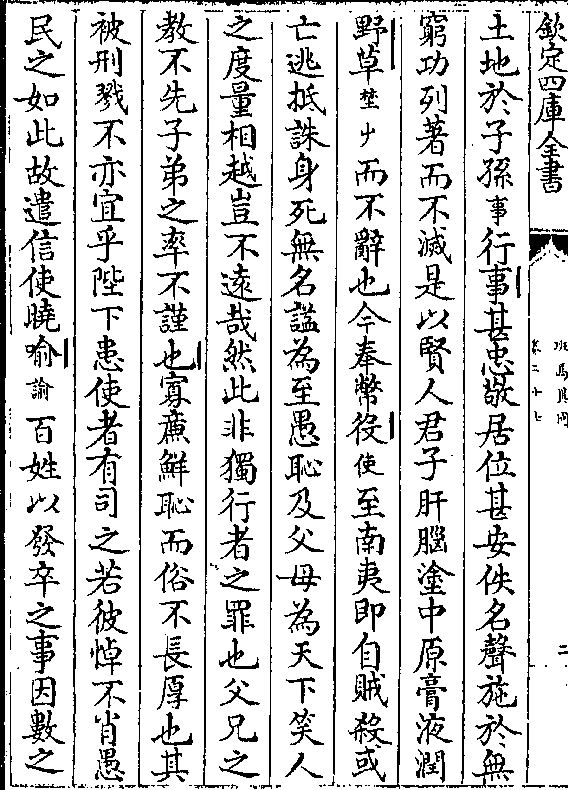 欽定四庫全書
班馬異同
卷二十七
二
土地於子孫事行事甚忠敬居位甚安佚名聲施於無
窮功列著而不滅是以賢人君子肝腦塗中原膏液潤
野草埜屮而不辭也今奉幣役使至南夷即自賊殺或
亡逃抵誅身死無名諡為至愚恥及父母為天下笑人
之度量相越豈不遠哉然此非獨行者之罪也父兄之
教不先子弟之率不謹也寡廉鮮恥而俗不長厚也其
被刑戮不亦宜乎陛下患使者有司之若彼悼不肖愚
民之如此故遣信使曉喻諭百姓以發卒之事因數之